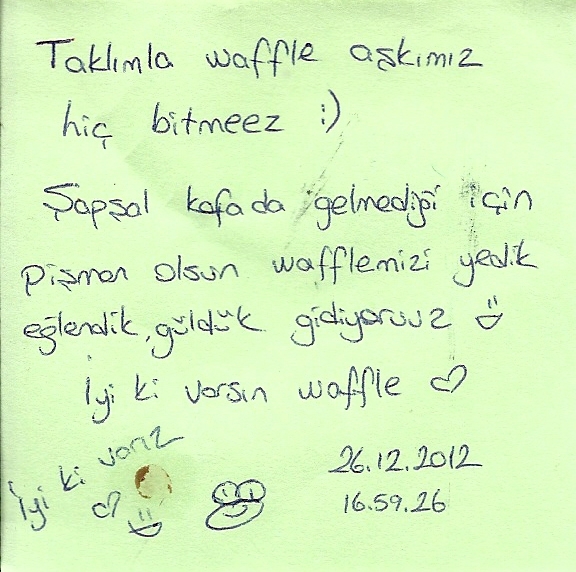 Taklımla waffle aşkımız
hiç bitmeez :)
Şapşal kafada gelmediği için
pişman olsun wafflemizi yedik
eğlendik, güldük gidiyoruuz
İyi ki varsın waffle ♡
İyi ki varız ♡
26.12.2012
16.59.26